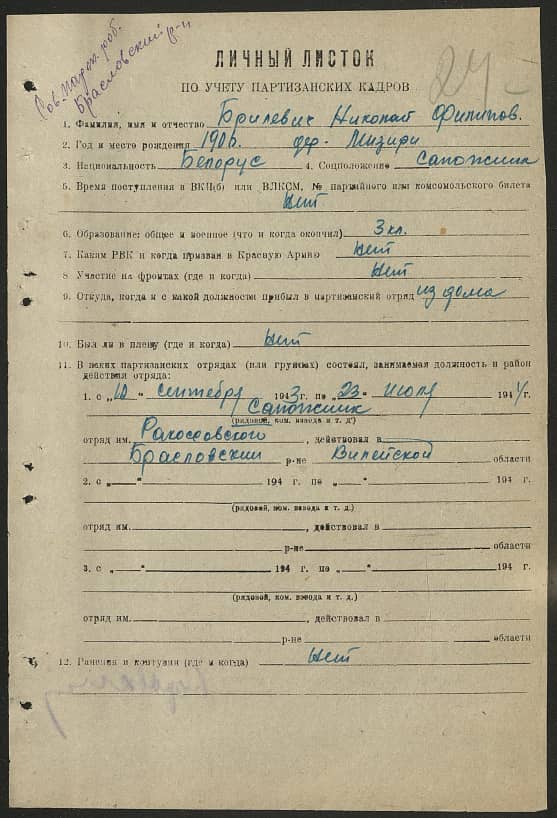 Сов-парт. раб.
Брасловский р-н
24
ЛИЧНЫЙ ЛИСТОК
ПО УЧЕТУ ПАРТИЗАНСКИХ КАДРОВ
1. Фамилия, имя и отчество Брилевич Николай Филипов.
2. Год и место рождения 1906. дер. Мизири
3. Национальность Белорус 4. Соцположение Сапожник
5. Время поступления в ВКП(б) или ВЛКСМ, № партийного или комсомольского билета
нет
6. Образование: общее и военное (что и когда окончил) 3 кл.
7. Каким РВК и когда призван в Красную Армию нет
8 Участие на фронтах (где и когда) нет
9. Откуда, когда и с какой должности прибыл в партизанский отряд из дома
10. Был ли в плену (где и когда) нет
11. В каких партизанских отрядах (или группах) состоял, занимаемая должность и район
действия отряда:
1. с „10" сентября 1943 г. по „23" июля 1944 г.
Сапожник
(рядовой, ком. взвода и т. д.)
отряд им. Рокосовской, действовал в
Брасловский р-не Вилейской области
2. с „ " 194 г. по „ " 194 г.
(рядовой, ком. взвода и т. д.)
отряд им. , действовал в
р-не области
3. с „ " 194 г. по „ " 194 г.
(рядовой, ком. взвода и т. д.)
отряд им. , действовал в
р-не области
12. Ранения и контузии (где и когда) нет